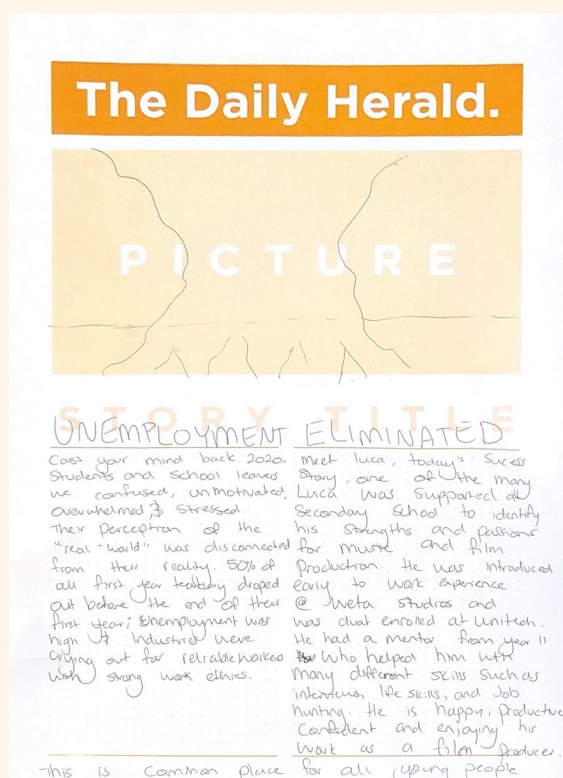 The Daily Herald.
PICTURE
STORY TITLE
UNEMPLOYMENT ELIMINATED
Cast your mind back 2020.
Students and School leavers
we confused, unmotivated,
overwhelmed & Stressed.
Their Perception of the
"real-world" was disconnected
from their reality. 50% of
all first year droped
out before the end of their
first year; Unemployment was
high & Industries were
crying out for reliable workers
with strong work ethics.
meet luca, today's Sucess
Story, one of the many
Luca was Supported at
Secondary School to identify
his Strengths and passions
for music and film
Production. He was introduced
early to work experience
@ Weta Studios and
was dual enrolled at unitech.
He had a mentor from year 11
who helped him with
many different skills such as
interviews, life skills, and Job
hunting. He is happy, productive
Confident and enjoying his
work as a film producer.
This is Common place for all young people